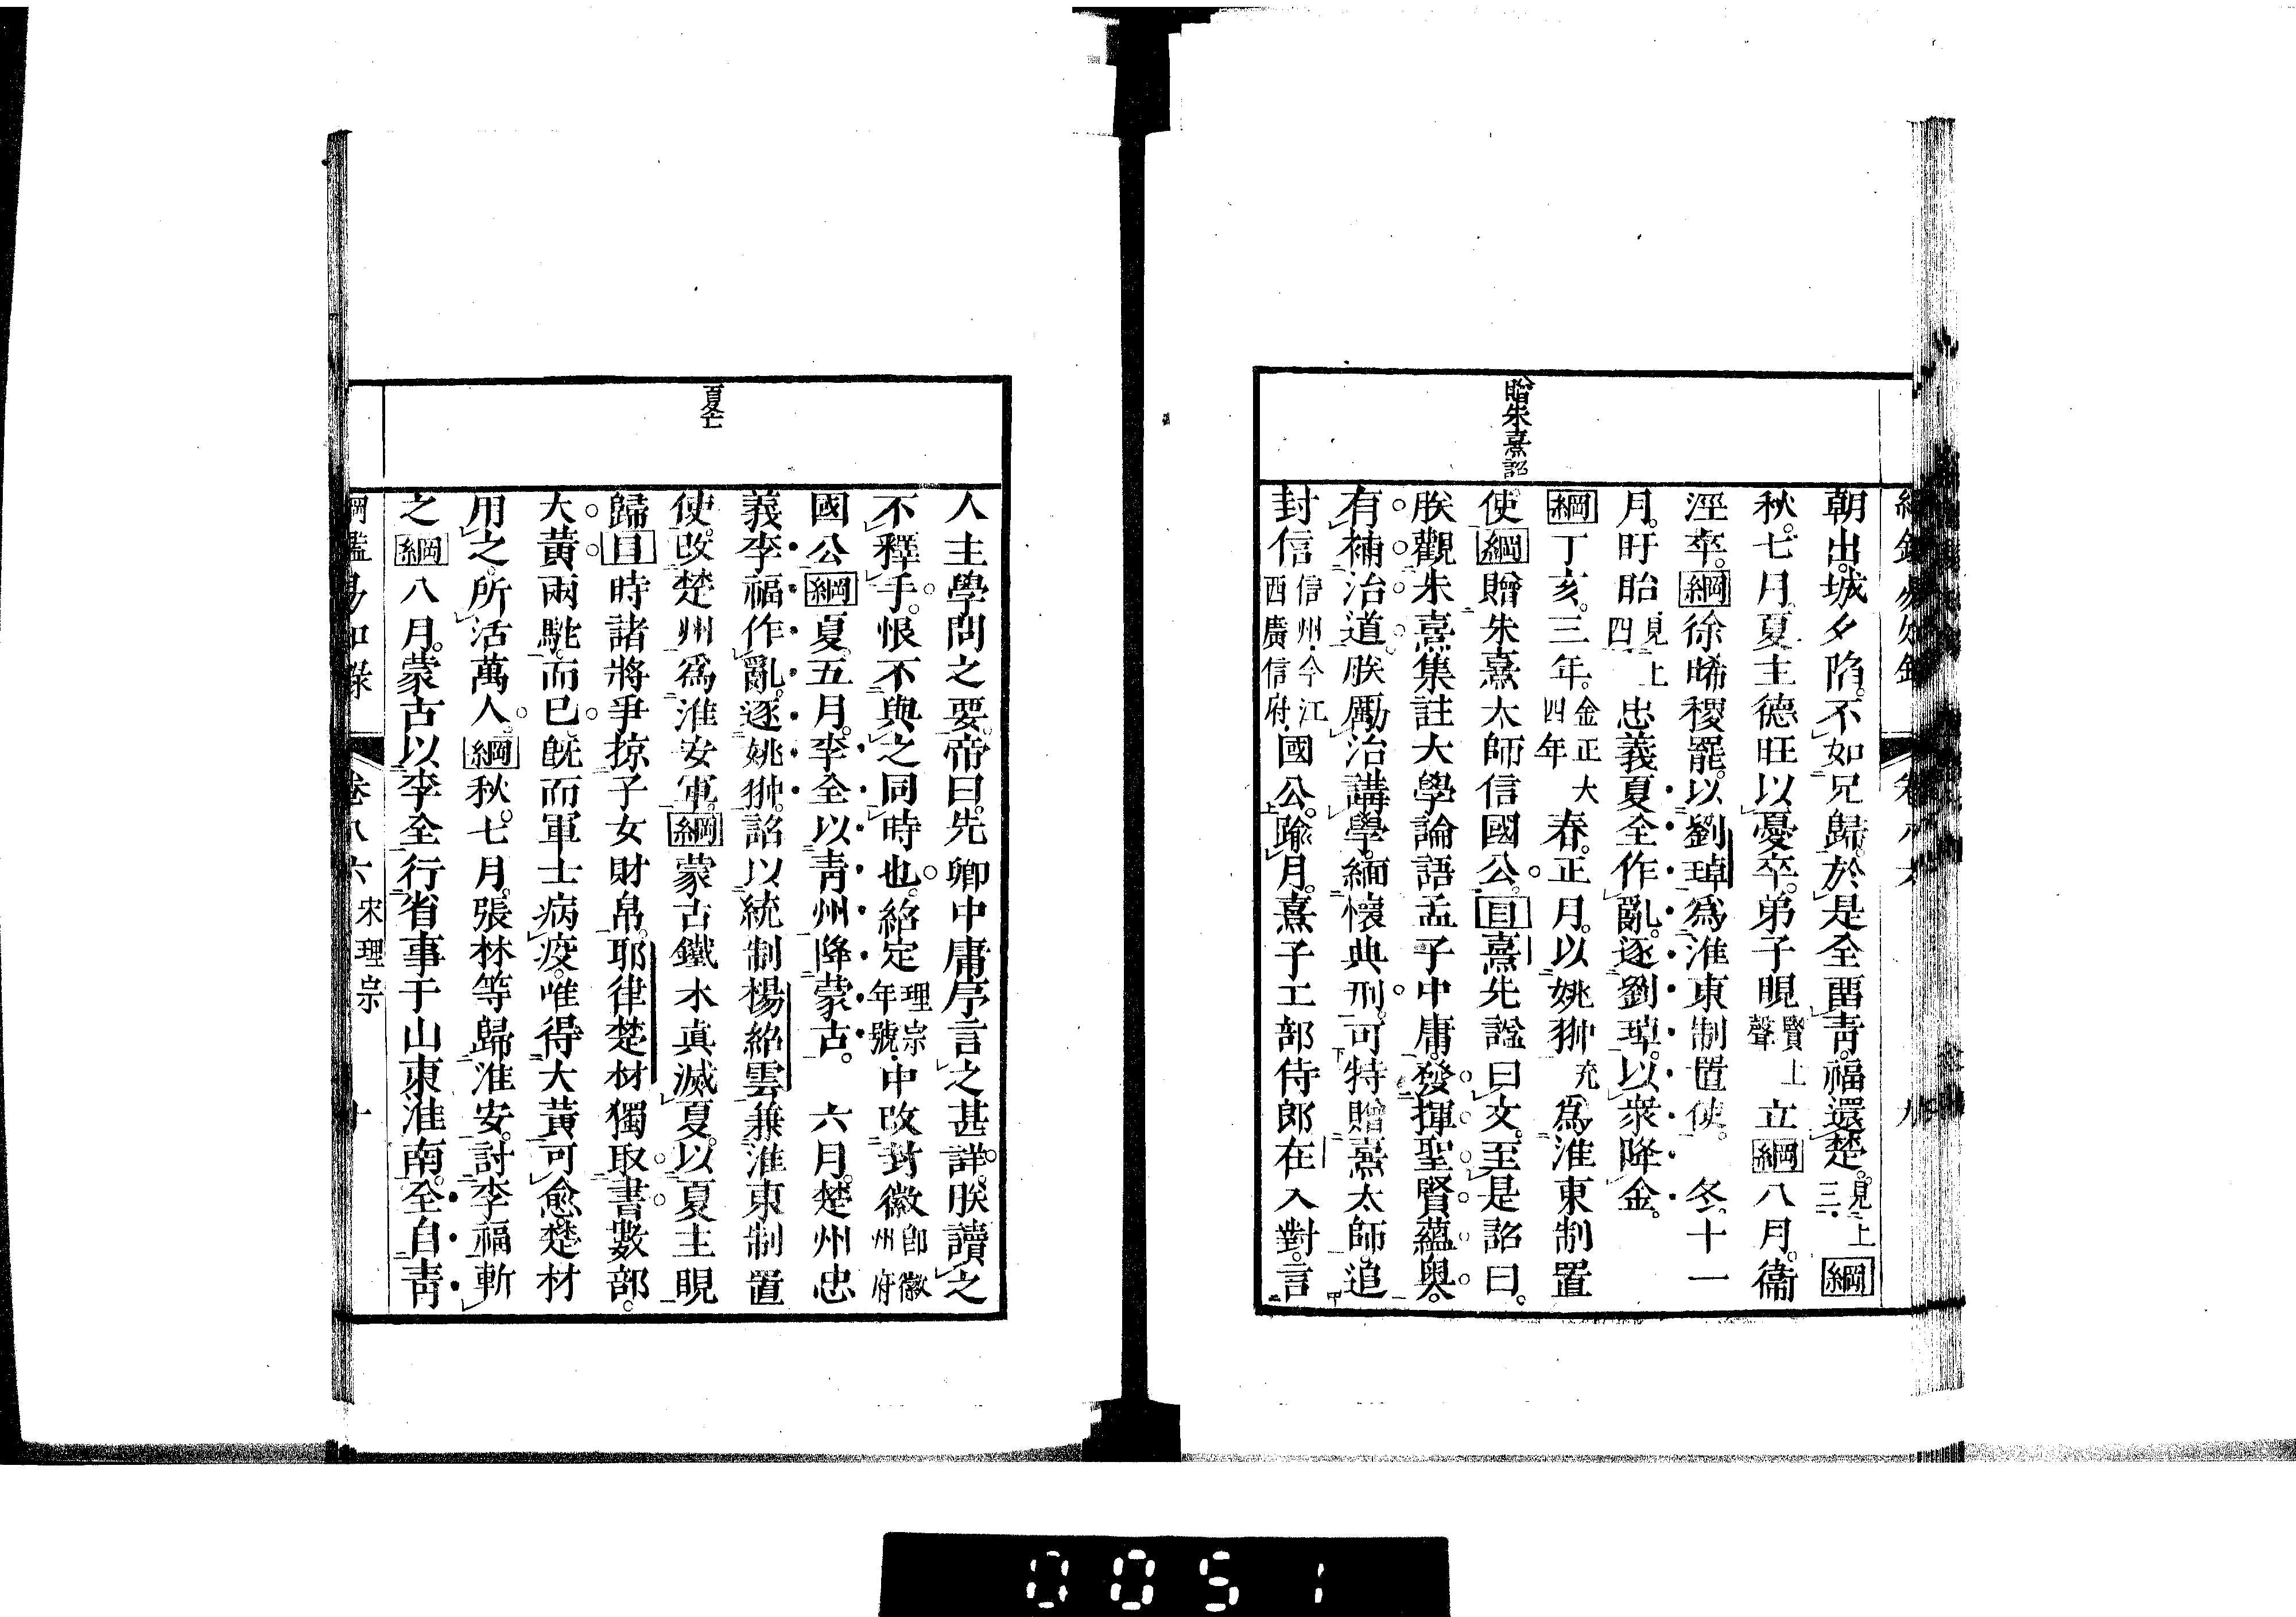 贈朱熹詔
朝出。城夕陷。不如兄歸。於是全畱青。福還楚。見上三。綱
秋。七月。夏主德旺以憂卒。弟子睍賢上聲立綱八月。衞
涇卒。綱徐晞稷罷。以劉琸爲淮東制置使。冬。十一
月。盱眙見上四忠義夏全作亂。逐劉琸。以衆降金。
綱丁亥。三年。金正大四年春。正月。以姚翀充爲淮東制置
使。綱贈朱熹太師信國公。目熹先諡曰文。至是詔曰。
朕觀朱熹集註大學論語孟子中庸。發揮聖賢蘊奧。
有補治道。朕勵治講學。緬懷典刑。可特贈熹太師。追
封信信州。今江西廣信府。國公。踰月。熹子工部侍郎在入對。言
夏亡
人主學問之要。帝曰。先卿中庸序言之甚詳。朕讀之
不釋手。恨不與之同時也。紹定理宗年號。中改封徽卽徽州府
國公綱夏。五月。李全以青州降蒙古。六月。楚州忠
義李福作亂。逐姚翀。詔以統制楊紹雲兼淮東制置
使。改楚州爲淮安軍。綱蒙古鐵木真滅夏。以夏主睍
歸目時諸將爭掠子女財帛。耶律楚材獨取書數部。
大黃兩駝而已。旣而軍士病疫。唯得大黃可愈。楚材
用之。所活萬人。綱秋。七月。張林等歸淮安。討李福斬
之綱八月。蒙古以李全行省事于山東淮南。全自青
綱鑑易知錄 卷八六 宋理宗 十